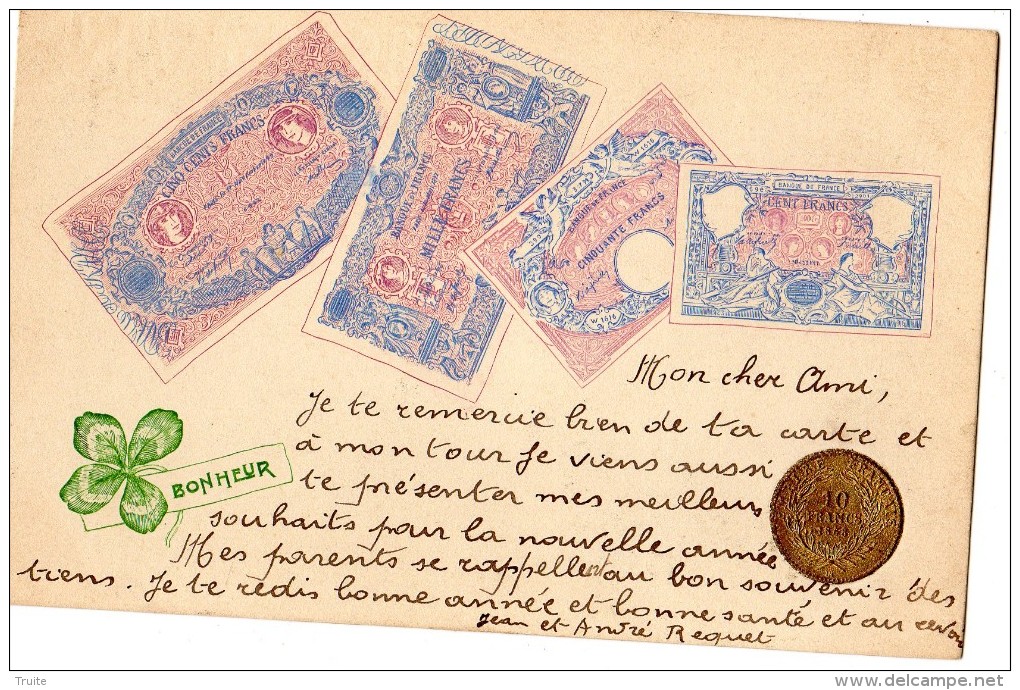 BANQUE DE FRANCE
CINQ CENTS FRANCS
BANQUE DE FRANCE
MILLE FRANCS
W.1616
BANQUE DE FRANCE
CINQUANTE FRANCS
W 1616
BANQUE DE FRANCE
CENT FRANCS
Mon cher Ami,
Je te remercie bien de ta carte et
à mon tour je viens aussi
te présenter mes meilleurs
souhaits pour la nouvelle année
Mes parents se rappellent au bon souvenir des
tiens. Je te redis bonne année et bonne santé et au revoir
Jean et André Requet
BONHEUR
10
FRANCS
Truite
© delcampe.net